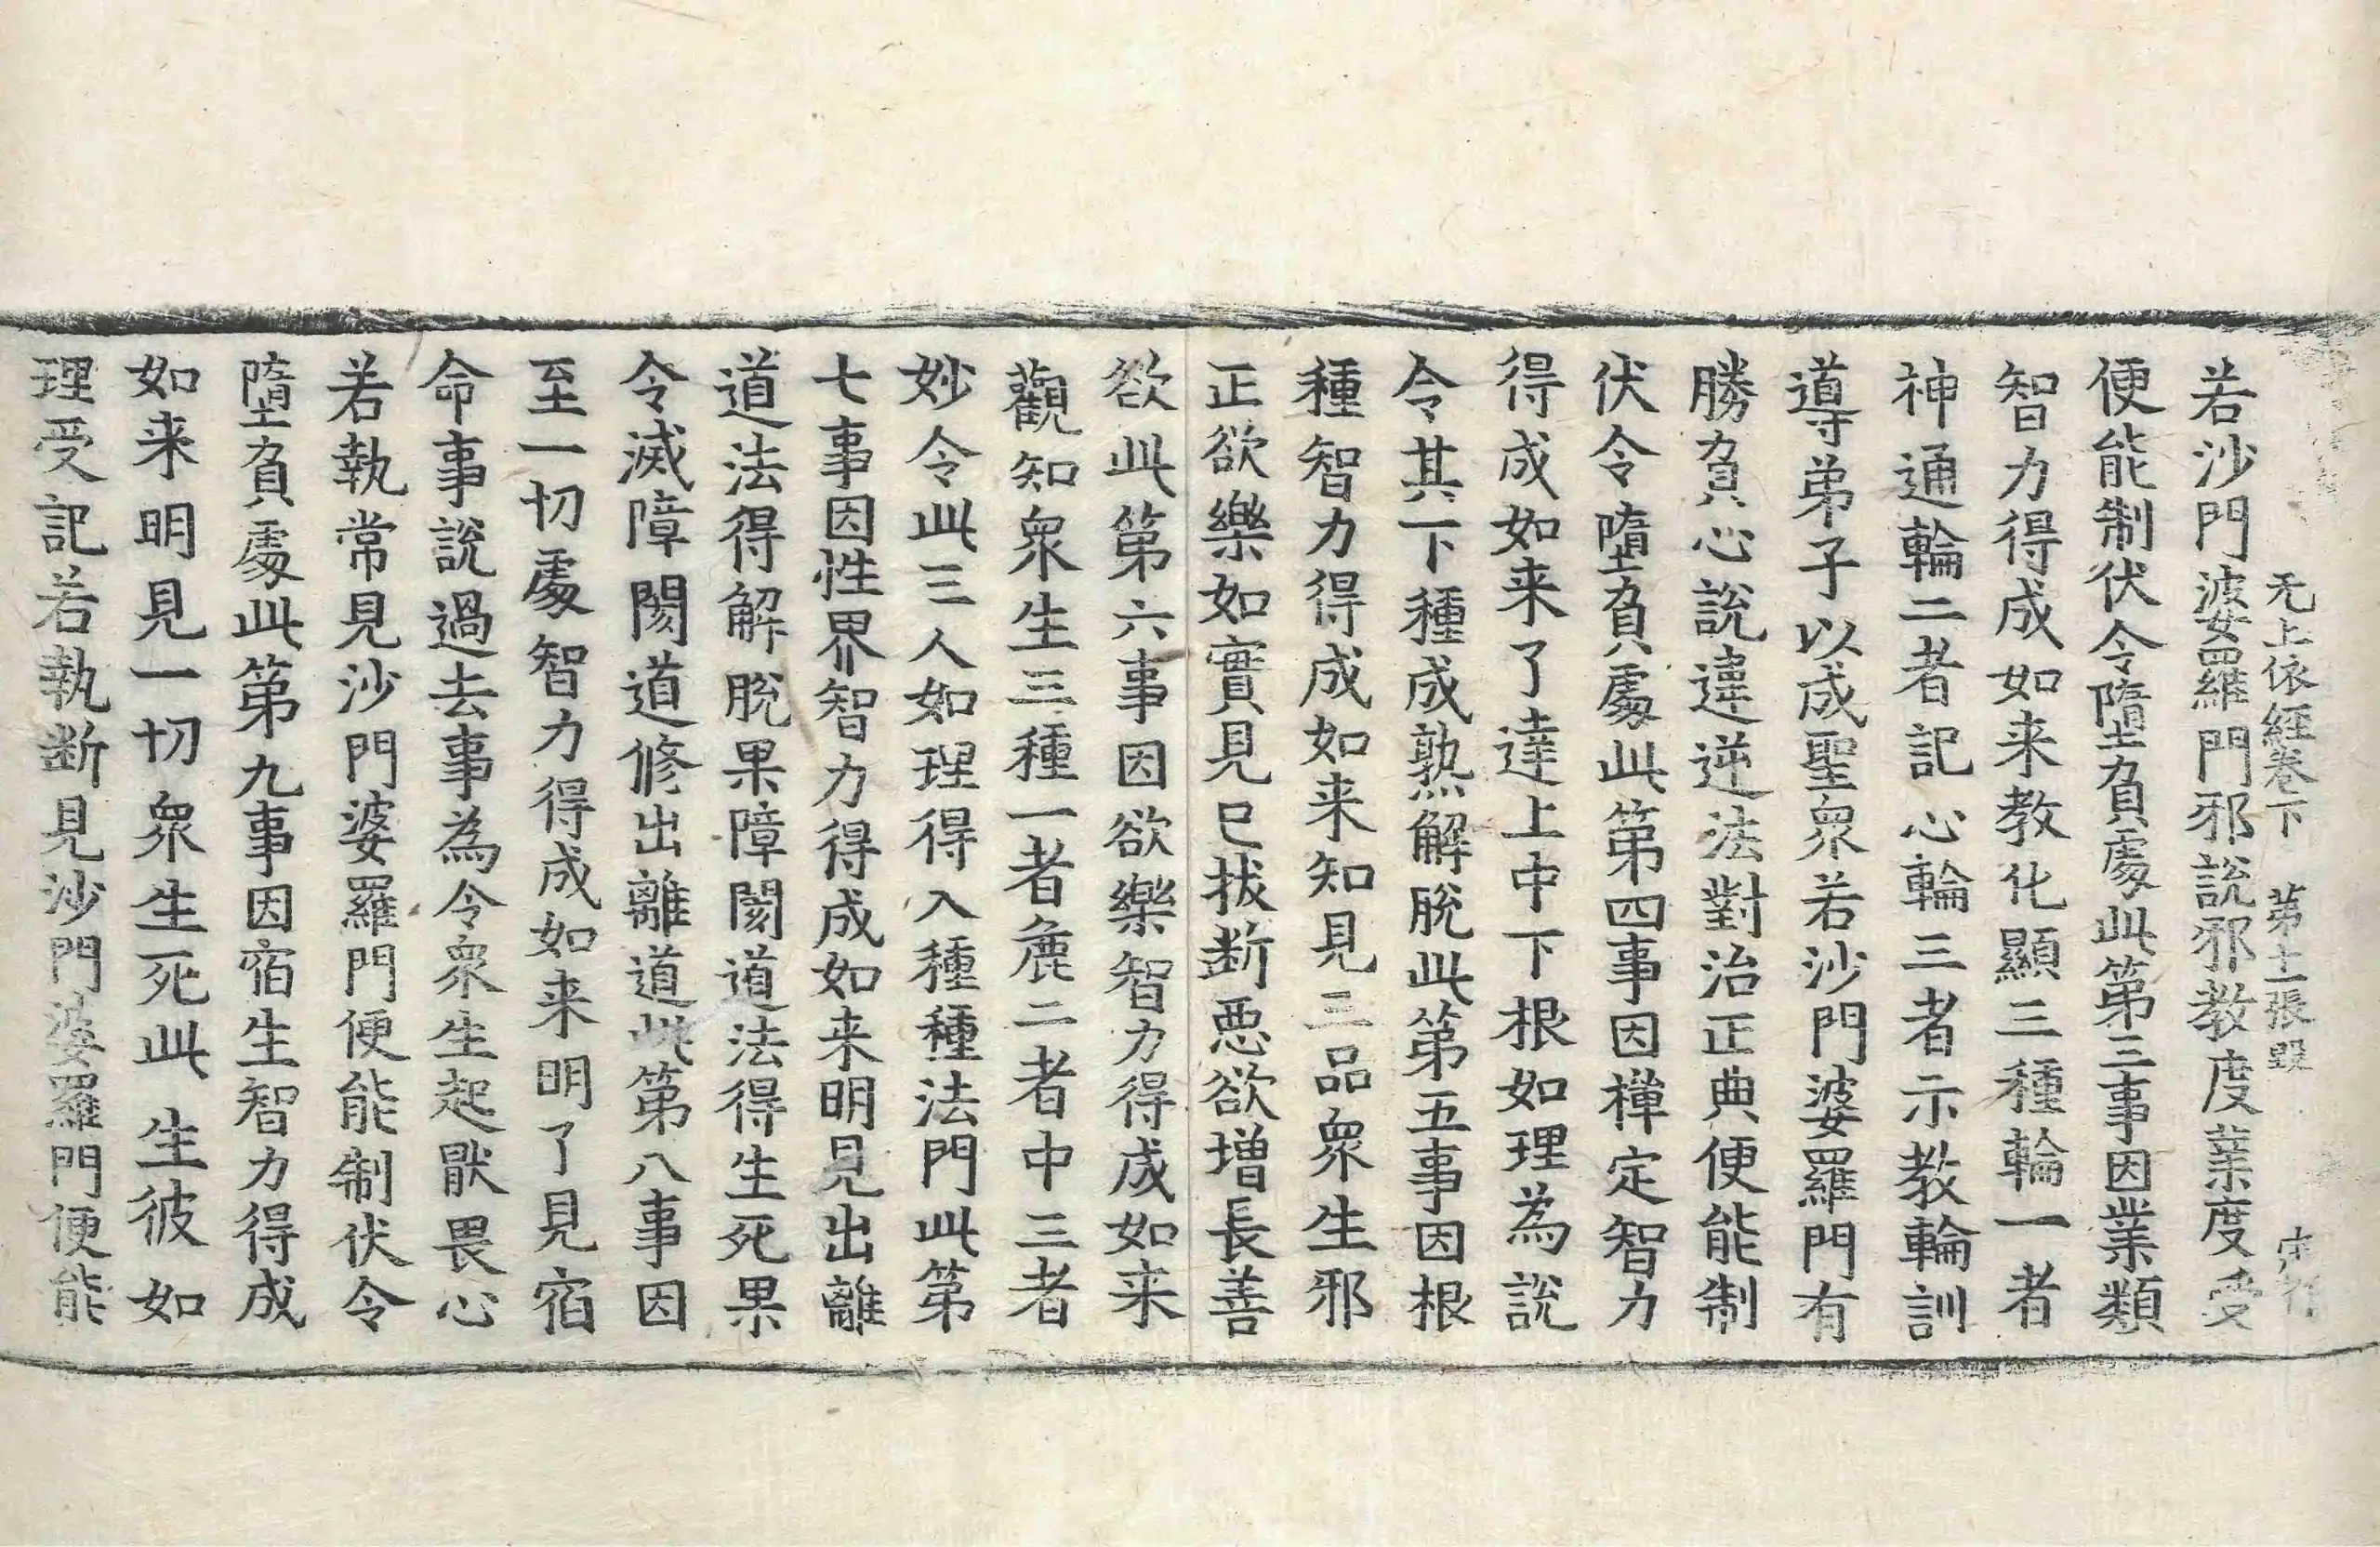 无上依經卷下 第十二張 毀
若沙門婆羅門邪說邪教度業度受
便能制伏令墮負處此第三事因業類
智力得成如来教化顯三種輪一者
神通輪二者記心輪三者示教輪訓
導弟子以成聖衆若沙門婆羅門有
勝負心說違逆法對治正典便能制
伏令墮負處此第四事因禪定智力
得成如来了達上中下根如理為說
令其下種成熟解脫此第五事因根
種智力得成如来知見三品衆生邪
正欲樂如實見已拔断惡欲增長善
欲此第六事因欲樂智力得成如来
觀知衆生三種一者麁二者中三者
妙令此三人如理得入種種法門此第
七事因性界智力得成如来明見出離
道法得解脫果障閡道法得生死果
令滅障閡道修出離道此第八事因
至一切處智力得成如来明了見宿
命事說過去事為令衆生起猒畏心
若執常見沙門婆羅門便能制伏令
墮負處此第九事因宿生智力得成
如来明見一切衆生死此生彼如
理受記若執断見沙門婆羅門便能